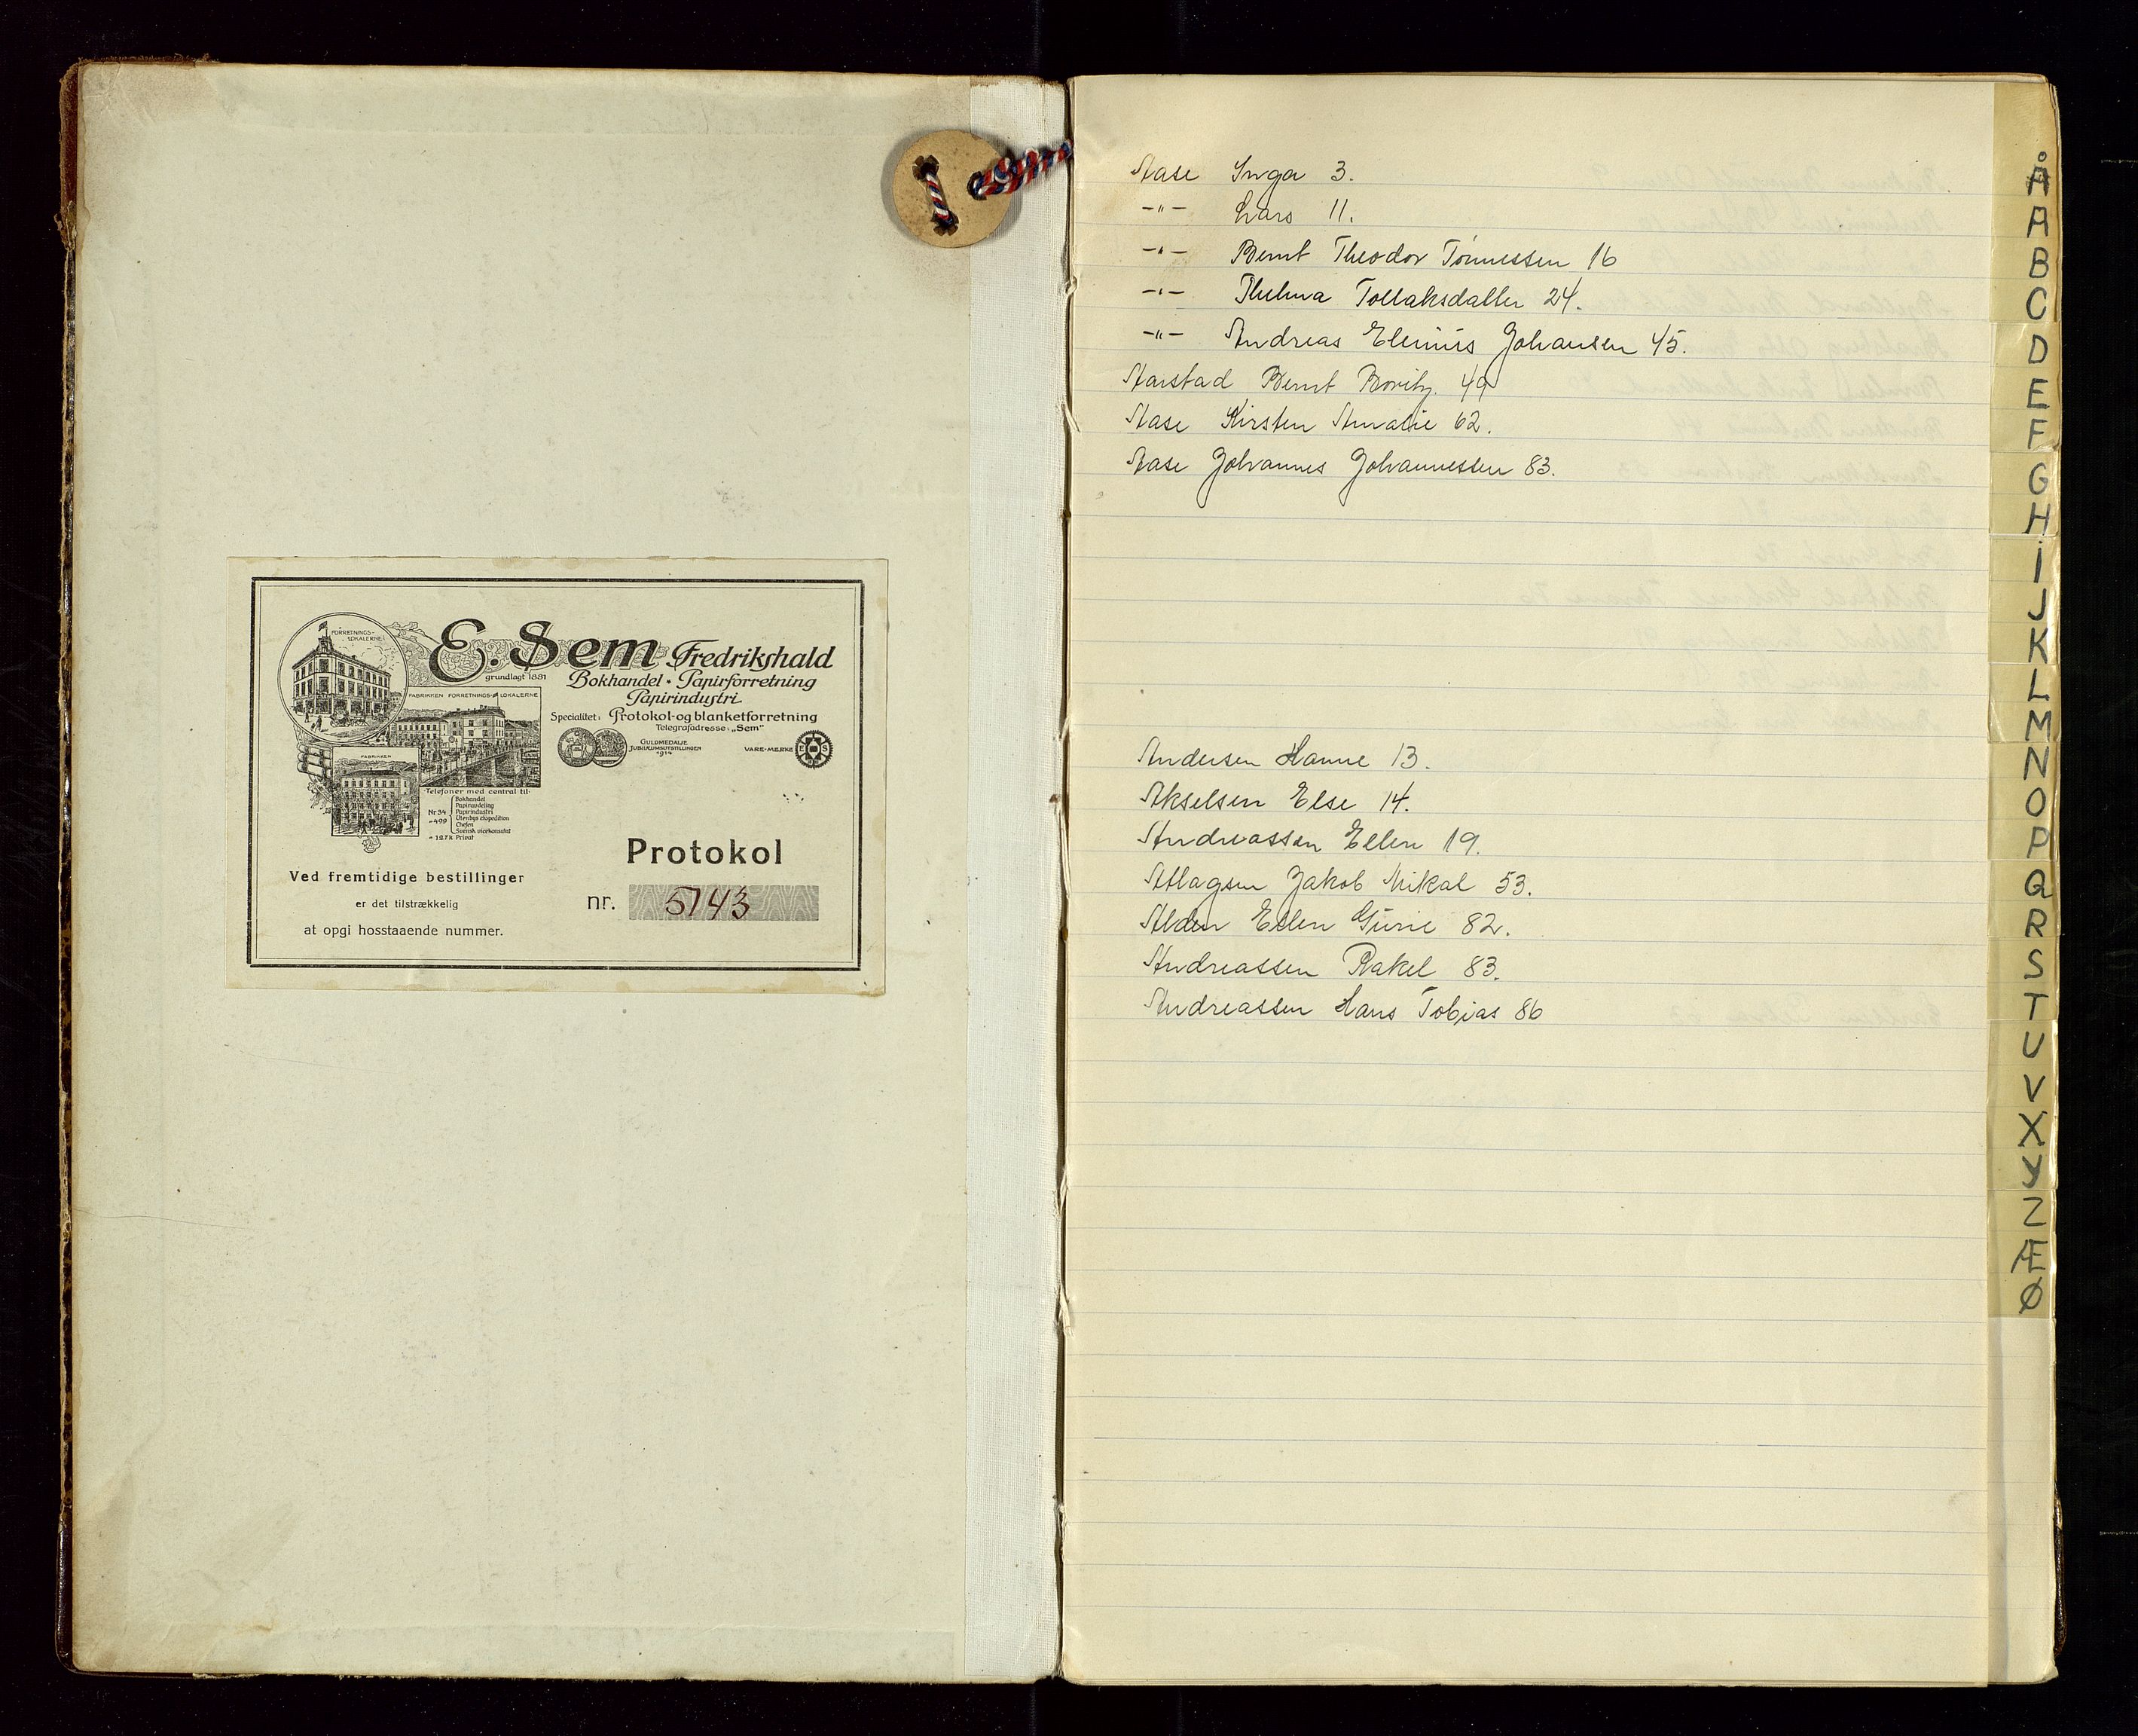 FORRETNINGS-
LOKALERNE
E. Sem Fredrikshald
grundlagt 1881
Bokhandel • Papirforretning
Papirindustri
FABRIKKEN FORRETNINGS-LOKALERNE
Specialitet: Protokol-og blanketforretning
Telegrafadresse: „Sem"
GULDMEDALJE
JUBILÆUMSUTSTILLINGEN
1914
VARE-MERKE E S
FABRIKKEN
Telefoner med central til:
Bokhandel
Papiravdeling
Nr 34 Papirindustri
- 499 Utenbys ekspedition
Chefen
Svensk vicekonsulat
- 127x Privat
Protokol
nr. 5743
Ved fremtidige bestillinger
er det tilstrækkelig
at opgi hosstaaende nummer.
Aase Inga 3.
-"- Lars 11.
-"- Bernt Theodor Tønnessen 16
-"- Thelma Tollaksdatter 24.
-"- Andreas Elenius Johansen 45.
Aarstad Bernt Moritz. 49
Aase Kirsten Amalie 62.
Aase Johannes Johannessen 83.
Andersen Hanne 13.
Akselsen Else 14.
Andreassen Ellen 19.
Atlagsen Jakob Mikal 53.
Alden Ellen Gurie 82.
Andreassen Rakel 83.
Andreassen Hans Tobias 86
Å
A
B
C
D
E
F
G
H
I
J
K
L
M
N
O
P
Q
R
S
T
U
V
X
Y
Z
Æ
Ø